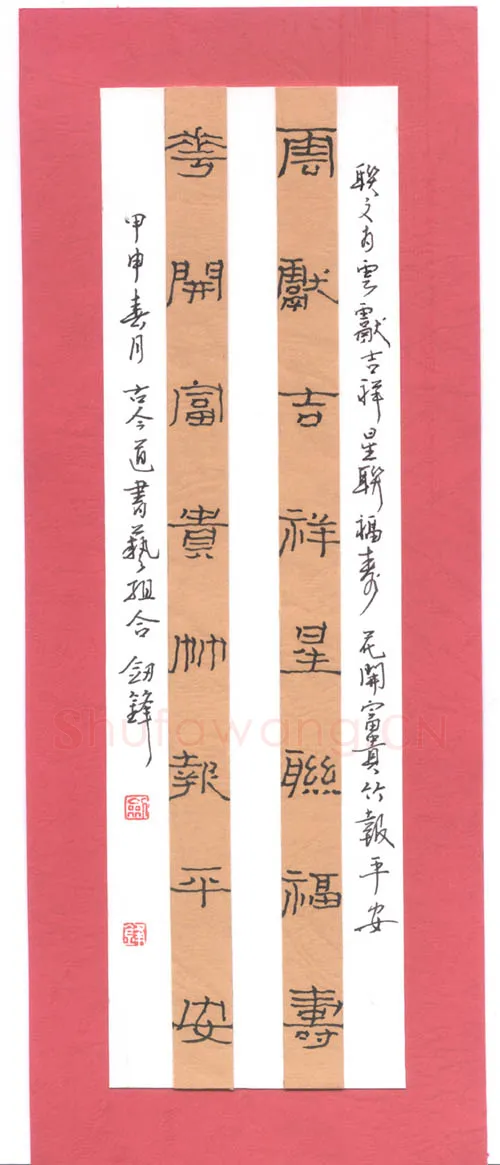 聯文雲獻吉祥星聯福壽 花開富貴竹報平安
雲獻吉祥星聯福壽
華開富貴竹報平安
甲申春月 古今道書藝組合 劍鋒
劍
鋒
Shufawang.CN